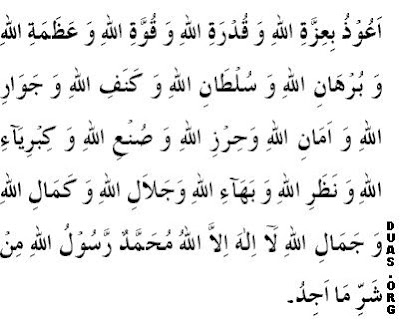 اَعُوْذُ بِعِزَّةِ اللهِ وَ قُدْرَةِ اللهِ وَ قُوَّةِ اللهِ وَ عَظَمَةِ اللهِ
وَ بُرْهَانِ اللهِ وَ سُلْطَانِ اللهِ وَ كَنَفِ اللهِ وَ جَوَارِ
اللهِ وَ اَمَانِ اللهِ وَحِرْزِ اللهِ وَ صُنْعِ اللهِ وَ كِبْرِيَآءِ
اللهِ وَ نَظَرِ اللهِ وَ بَهَاءِ اللهِ وَجَلَالِ اللهِ وَ كَمَالِ اللهِ
وَ جَمَالِ اللهِ لَآ اِلٰهَ اِلاَّ اللهُ مُحَمَّدٌ رَّسُوْلُ اللهِ مِنْ
شَرِّ مَا اَجِدُ۔
DUAS.ORG